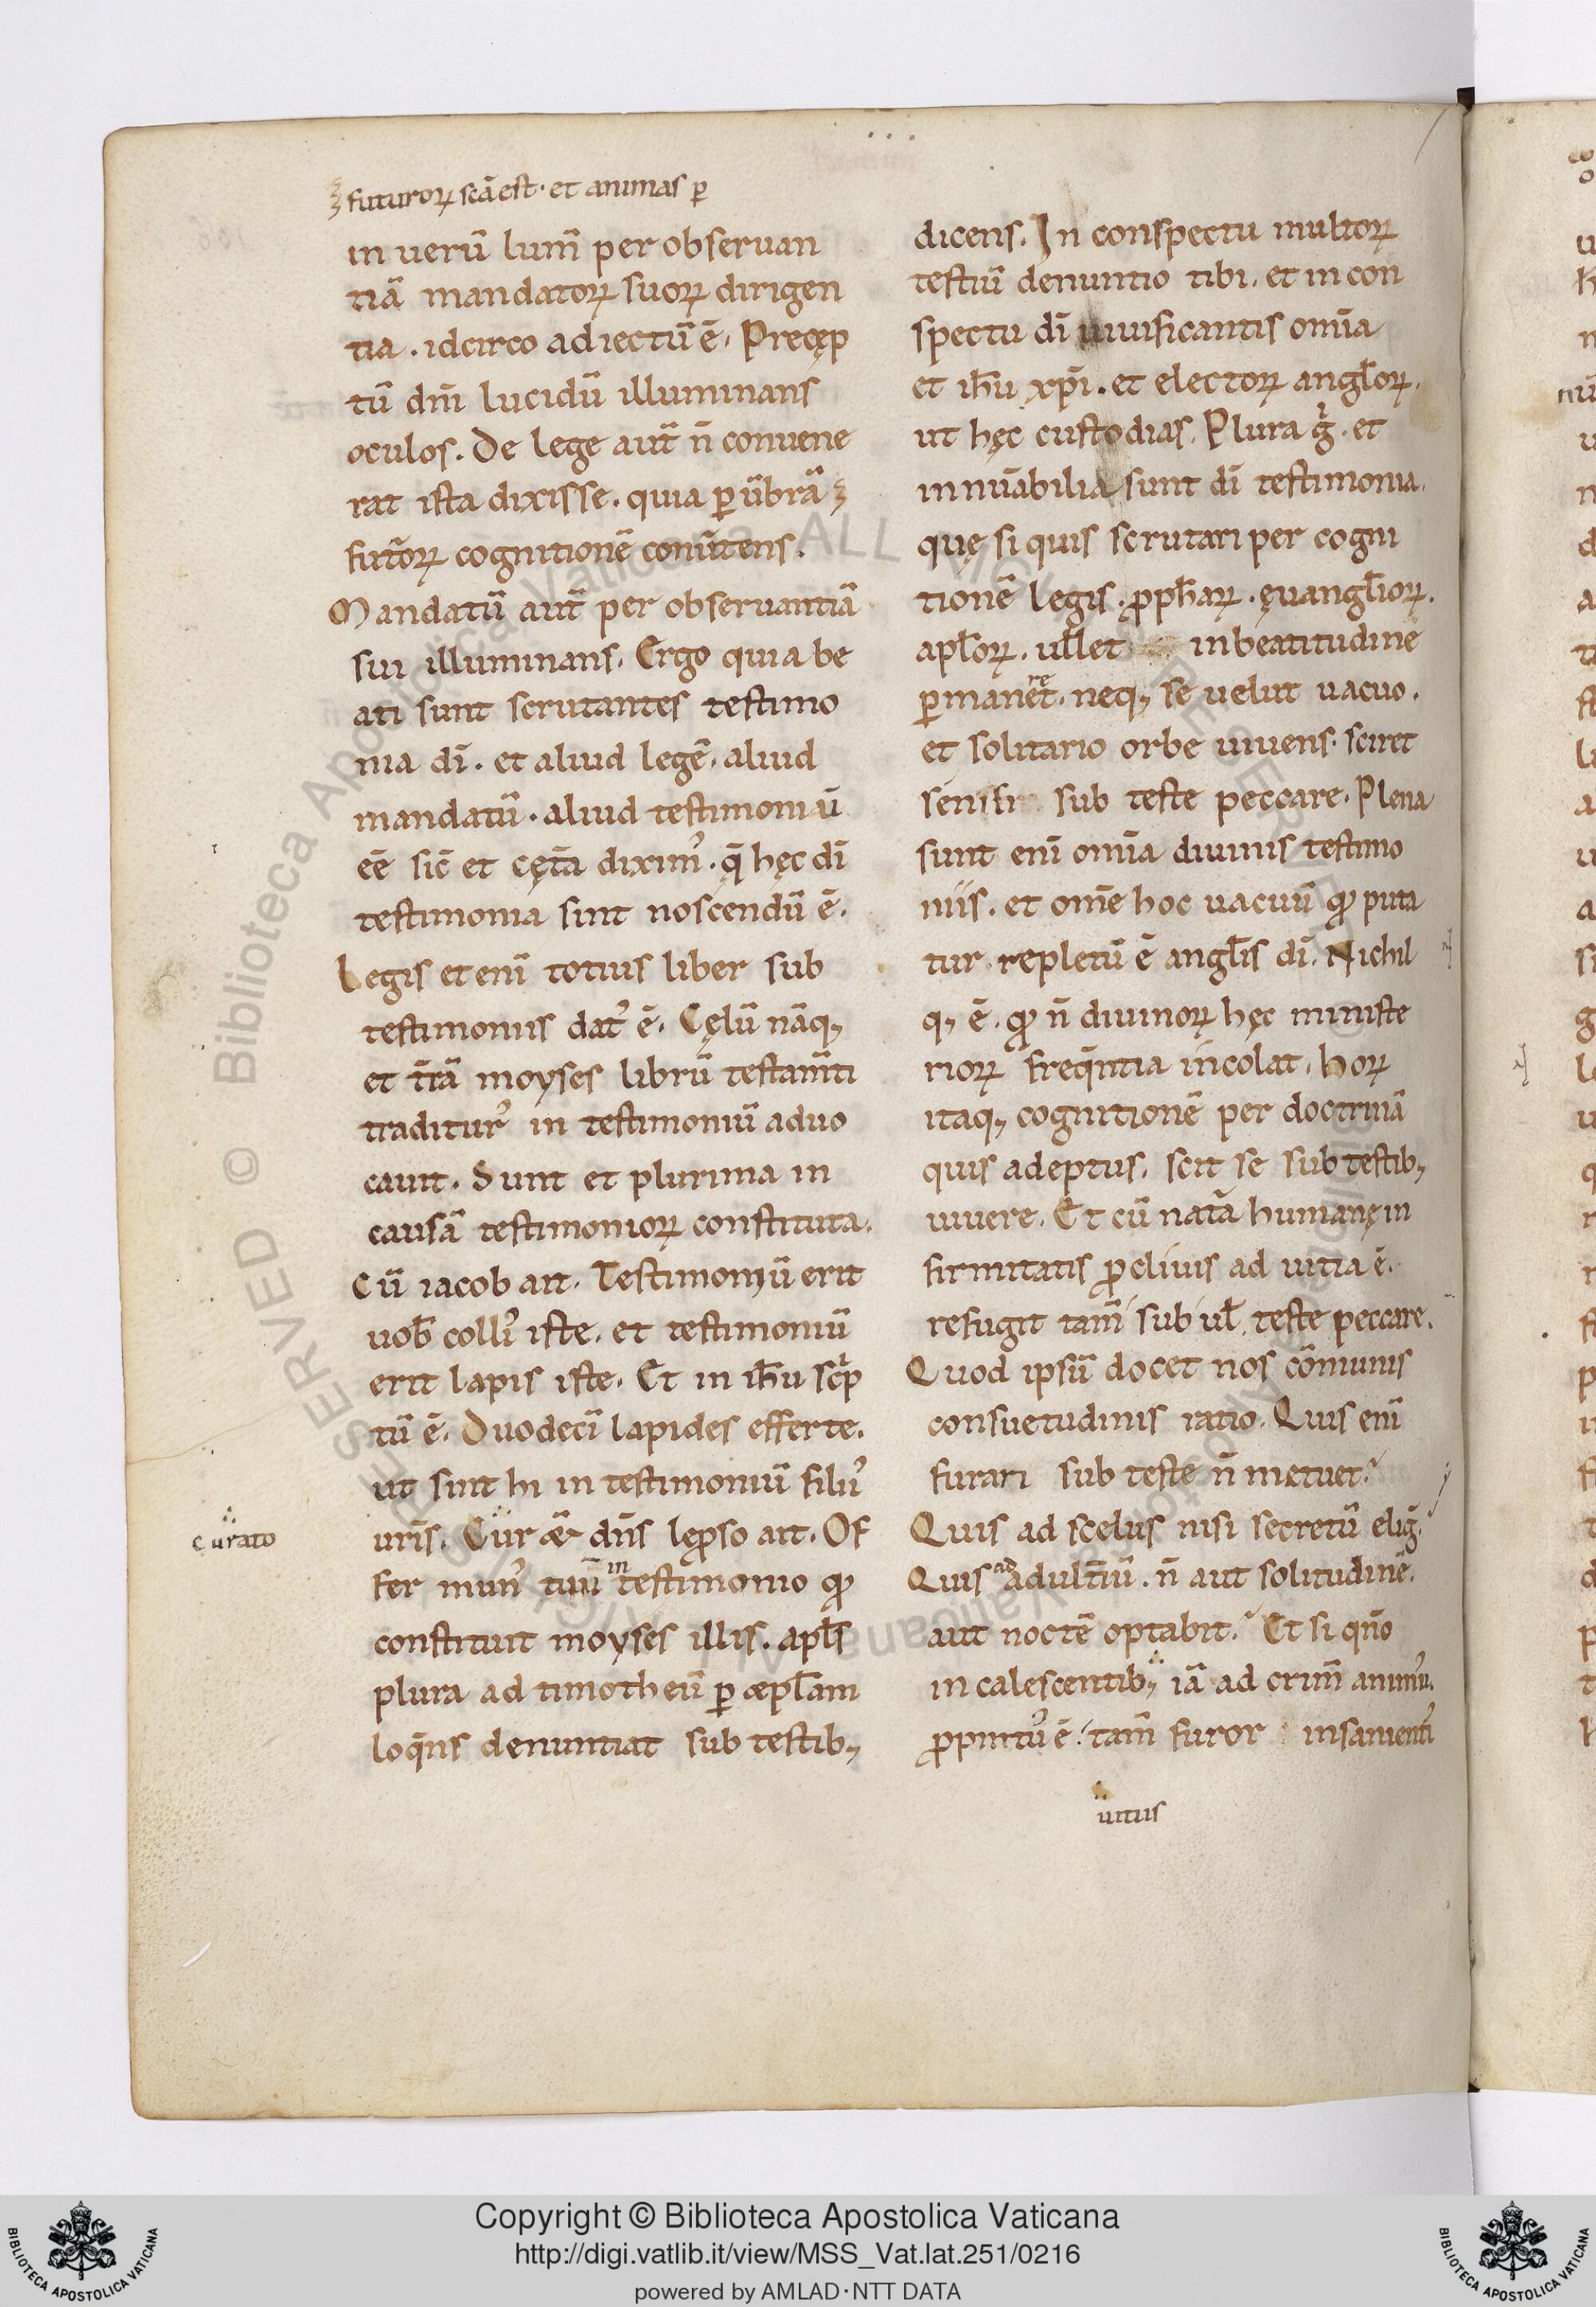 futuroꝝ scā est · et animas ꝑ
in uerū lum̄ per obseruan
tiā mandatoꝝ suoꝝ dirigen
tia . idcirco adiectū ē . Precęp
tū dn̄i lucidū illuminans
oculos . De lege aut̄ n̄ conuene
rat ista dixisse . quia ꝑ ūbrā
fut̄oꝝ cognitionē conūtens .
Mandatū aut̄ per obseruantiā
sui illuminans . Ergo quia be
ati sunt scrutantes testimo
nia dī . et aliud legē . aliud
mandatū . aliud testimoniū
eē sic̄ et cęt̄a diximꝰ . q̄ hęc dī
testimonia sint noscendū ē .
Legis et enī totius liber sub
testimoniis datꝰ ē . Cęlū nāq;
et t̄rā moyses librū testam̄ti
traditurꝰ in testimoniū aduo
cauit . Sunt et plurima in
causā testimonioꝝ constituta .
Cū iacob ait . Testimoniū erit
uob̄ collꝰ iste . et testimoniū
erit lapis iste . Et in ih̄u sc̓p
tū ē . Duodecī lapides efferte .
ut sint hi in testimoniū filiꝰ
ur̄is . Cur æ dn̄s lęꝓso ait . Of
curato
fer munꝰ tuū in testimonio qđ
constituit moyses illis . apl̄s
plura ad timotheū ꝑ æpl̄am
loq̄ns denuntiat sub testib;
dicens . In conspectu multoꝝ
testiū denuntio tibi . et in con
spectu dī uiuificantis om̄ia
et ih̄u xp̄i . et electoꝝ angl̄oꝝ .
ut hęc custodias . Plura g̓ . et
innūabilia sunt dī testimonia .
quę si quis scrutari per cogni
tionē legis . ꝓph̄aꝝ . ęuangl̄ioꝝ .
apl̄oꝝ . uľlet in beatitudinē
ꝑmaneret . neq; se uelut uacuo .
et solitario orbe uiuens . sciret
se sub teste peccare . Plena
sunt enī om̄ia diuinis testimo
niis . et om̄e hoc uacuū qđ puta
tur . repletū ē angl̄is dī . Nichil
q; ē . qđ n̄ diuinoꝝ hęc ministe
rioꝝ freq̄ntia incolat . hoꝝ
itaq; cognitionē per doctrinā
quis adeptus . scit se sub testib;
uiuere . Et cū nat̄a humanę in
firmitatis ꝓcliuis ad uitia ē .
refugit tam̄ sub ul̄ . teste peccare .
Quod ipsū docet nos cōmunis
consuetudinis ratio . Quis enī
furari sub teste n̄ metuet ?
Quis ad scelus nisi secretū elig̓ ?
Quis ad adult̄iū . n̄ aut solitudinē .
aut noctē optabit ? Et si qn̄o
in calescentib; iā ad crim̄ animꝰ .
ꝓpinitꝰ ē . tam̄ furor insanientꝰ
uitus
Copyright © Biblioteca Apostolica Vaticana
http://digi.vatlib.it/view/MSS_Vat.lat.251/0216
powered by AMLAD·NTT DATA
BIBLIOTECA APOSTOLICA VATICANA
BIBLIOTECA APOSTOLICA VATICANA